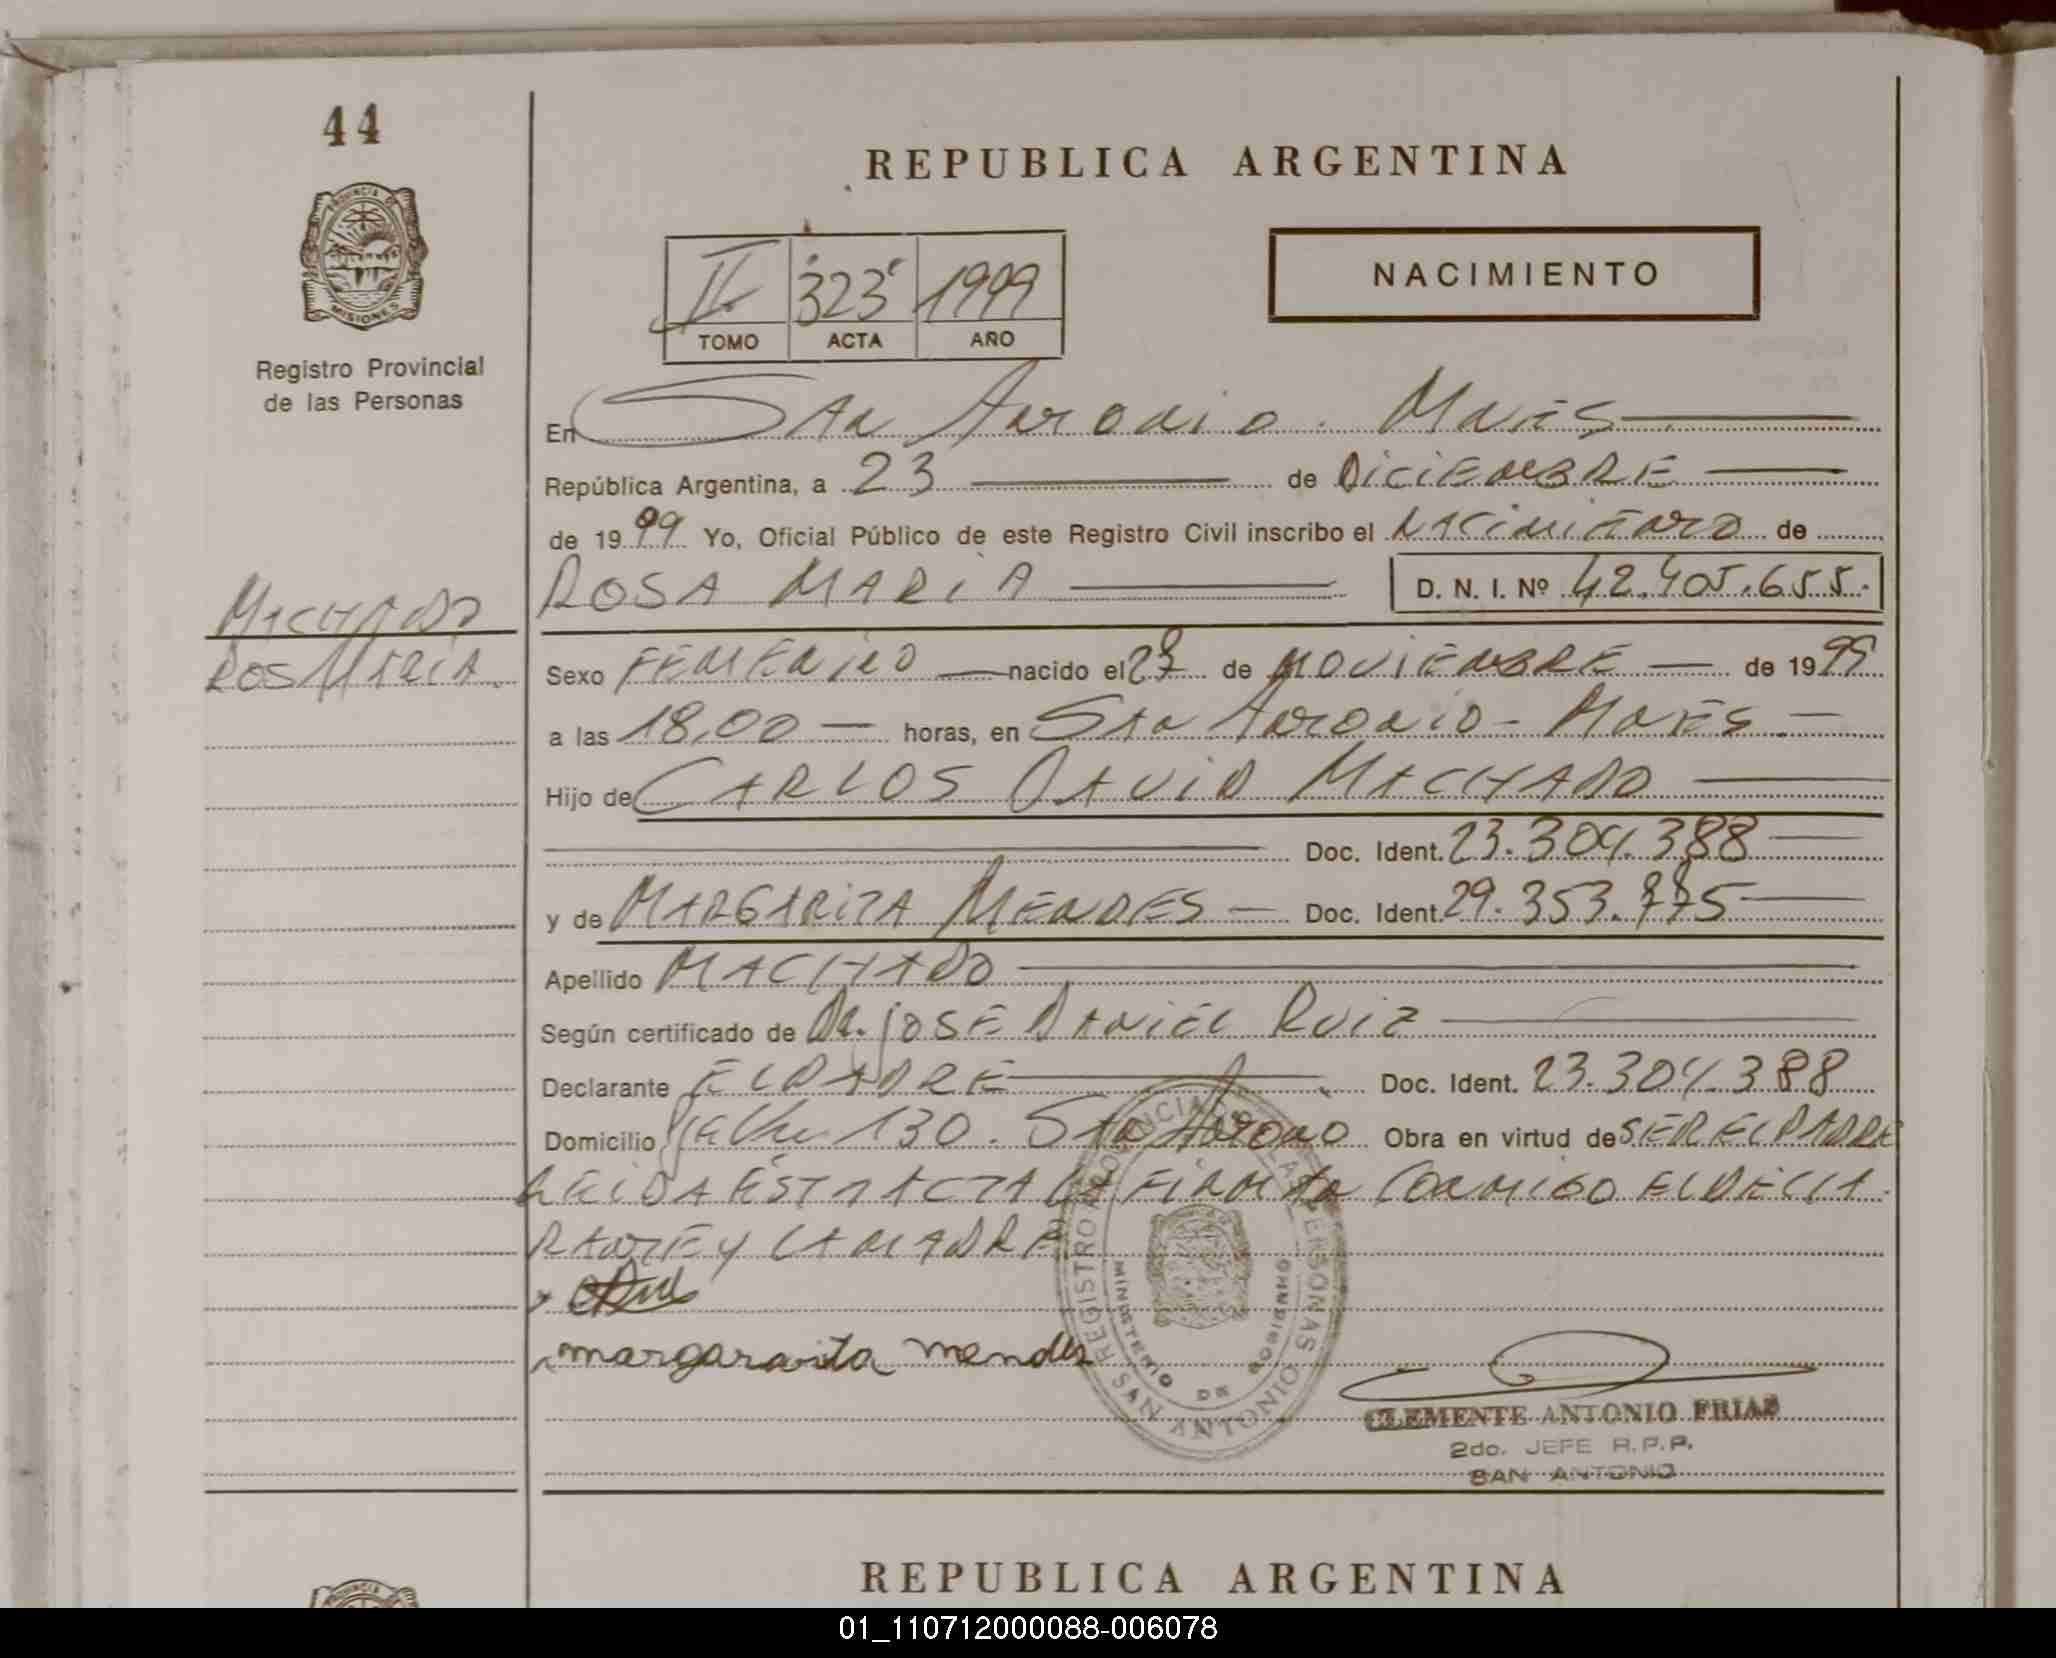 44
REPUBLICA ARGENTINA
PROVINCIA DE
MISIONES
NACIMIENTO
II 323 1999
TOMO ACTA AÑO
Registro Provincial
de las Personas
En San Antonio. Mnes
República Argentina, a 23 de Diciembre
de 1999 Yo, Oficial Público de este Registro Civil inscribo el Nacimiento de
ROSA MARIA D. N. I. Nº 42.405.655.
MACHADO
ROSA MARIA.
Sexo FEMENINO nacido el 27 de NOVIEMBRE de 1999
a las 18,00 horas, en San Antonio - Mnes
Hijo de CARLOS DAVID MACHADO
Doc. Ident. 23.304.388
y de MARGARITA MENDES Doc. Ident. 29.353.775
Apellido MACHADO
Según certificado de Dr. JOSE DANIEL RUIZ
Declarante EL PADRE Doc. Ident. 23.304.388
Domicilio 130. San Antonio Obra en virtud de SER EL PADRE
LEIDA ESTA ACTA LA FIRMAN CONMIGO EL DECLA
RANTE Y LA MADRE
margaraita mendes
REGISTRO PROVINCIAL DE LAS PERSONAS
MINISTERIO DE GOBIERNO
SAN ANTONIO
CLEMENTE ANTONIO FRIAS
2do. JEFE R.P.P.
SAN ANTONIO
REPUBLICA ARGENTINA
PROVINCIA
01_110712000088-006078